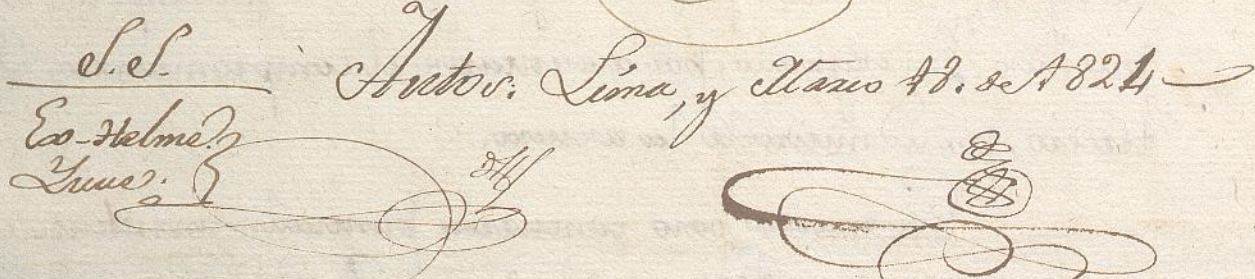 S.S. Autos: Lima, y Marzo 18. de 1824
Ex-Helme